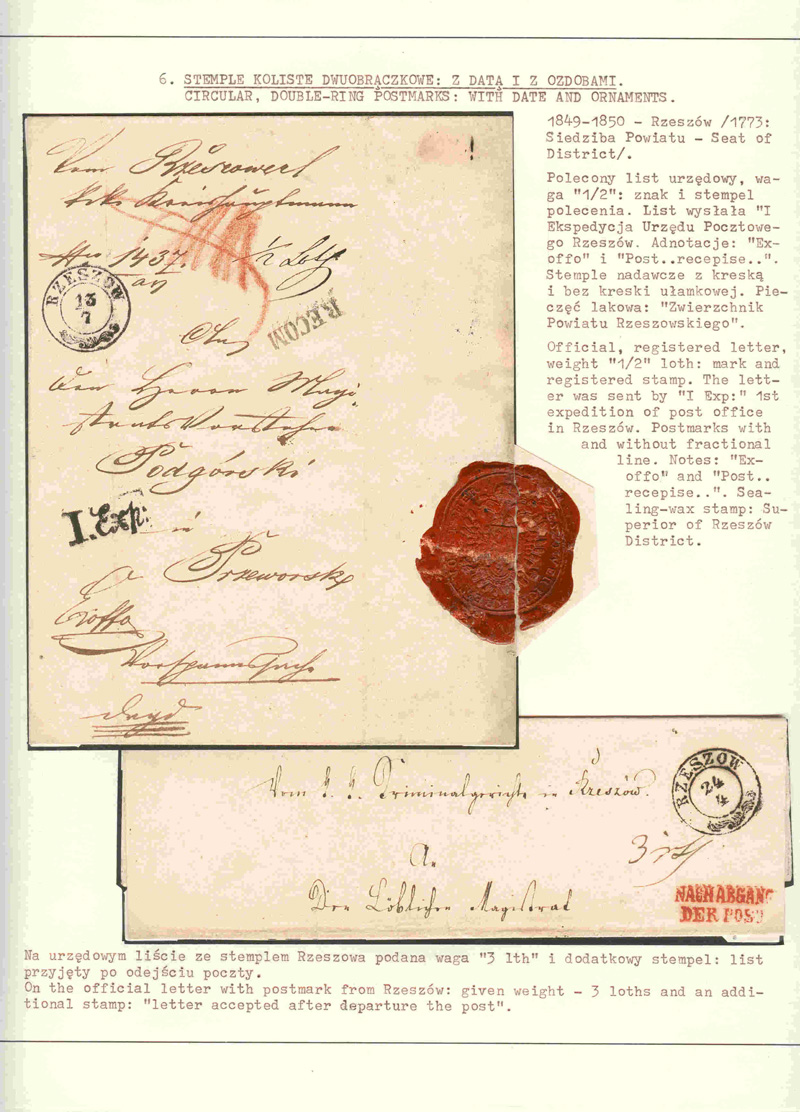 6. STEMPLE KOLISTE DWUOBRĄCZKOWE: Z DATĄ I Z OZDOBAMI.
CIRCULAR, DOUBLE-RING POSTMARKS: WITH DATE AND ORNAMENTS.
1849-1850 - Rzeszów /1773:
Siedziba Powiatu - Seat of
District/.
Polecony list urzędowy, wa-
ga "1/2": znak i stempel
polecenia. List wysłała "I
Ekspedycja Urzędu Pocztowe-
go Rzeszów. Adnotacje: "Ex-
offo" i "Post..recepise..".
Stemple nadawcze z kreską
i bez kreski ułamkowej. Pie-
częć lakowa: "Zwierzchnik
Powiatu Rzeszowskiego".
Official, registered letter,
weight "1/2" loth: mark and
registered stamp. The lett-
er was sent by "I Exp:" 1st
expedition of post office
in Rzeszów. Postmarks with
and without fractional
line. Notes: "Ex-
offo" and "Post..
recepise..". Sea-
ling-wax stamp: Su-
perior of Rzeszów
District.
Vom Rzeszower
kk Kreishauptmann
No 1437. 1/2 Loth
an
RZESZOW
13
7
RECOM
Den Herrn Magi-
stratsVorsteher
Podgórski
I. Exp:
in
Przeworsk
Exoffo
RZESZOW
24
4
Vom k. k. Criminalgerichte in Rzeszów.
An
3 lth
Den Löblichen Magistrat
NACH ABGANG
DER POST
Na urzędowym liście ze stemplem Rzeszowa podana waga "3 lth" i dodatkowy stempel: list
przyjęty po odejściu poczty.
On the official letter with postmark from Rzeszów: given weight - 3 loths and an addi-
tional stamp: "letter accepted after departure the post".